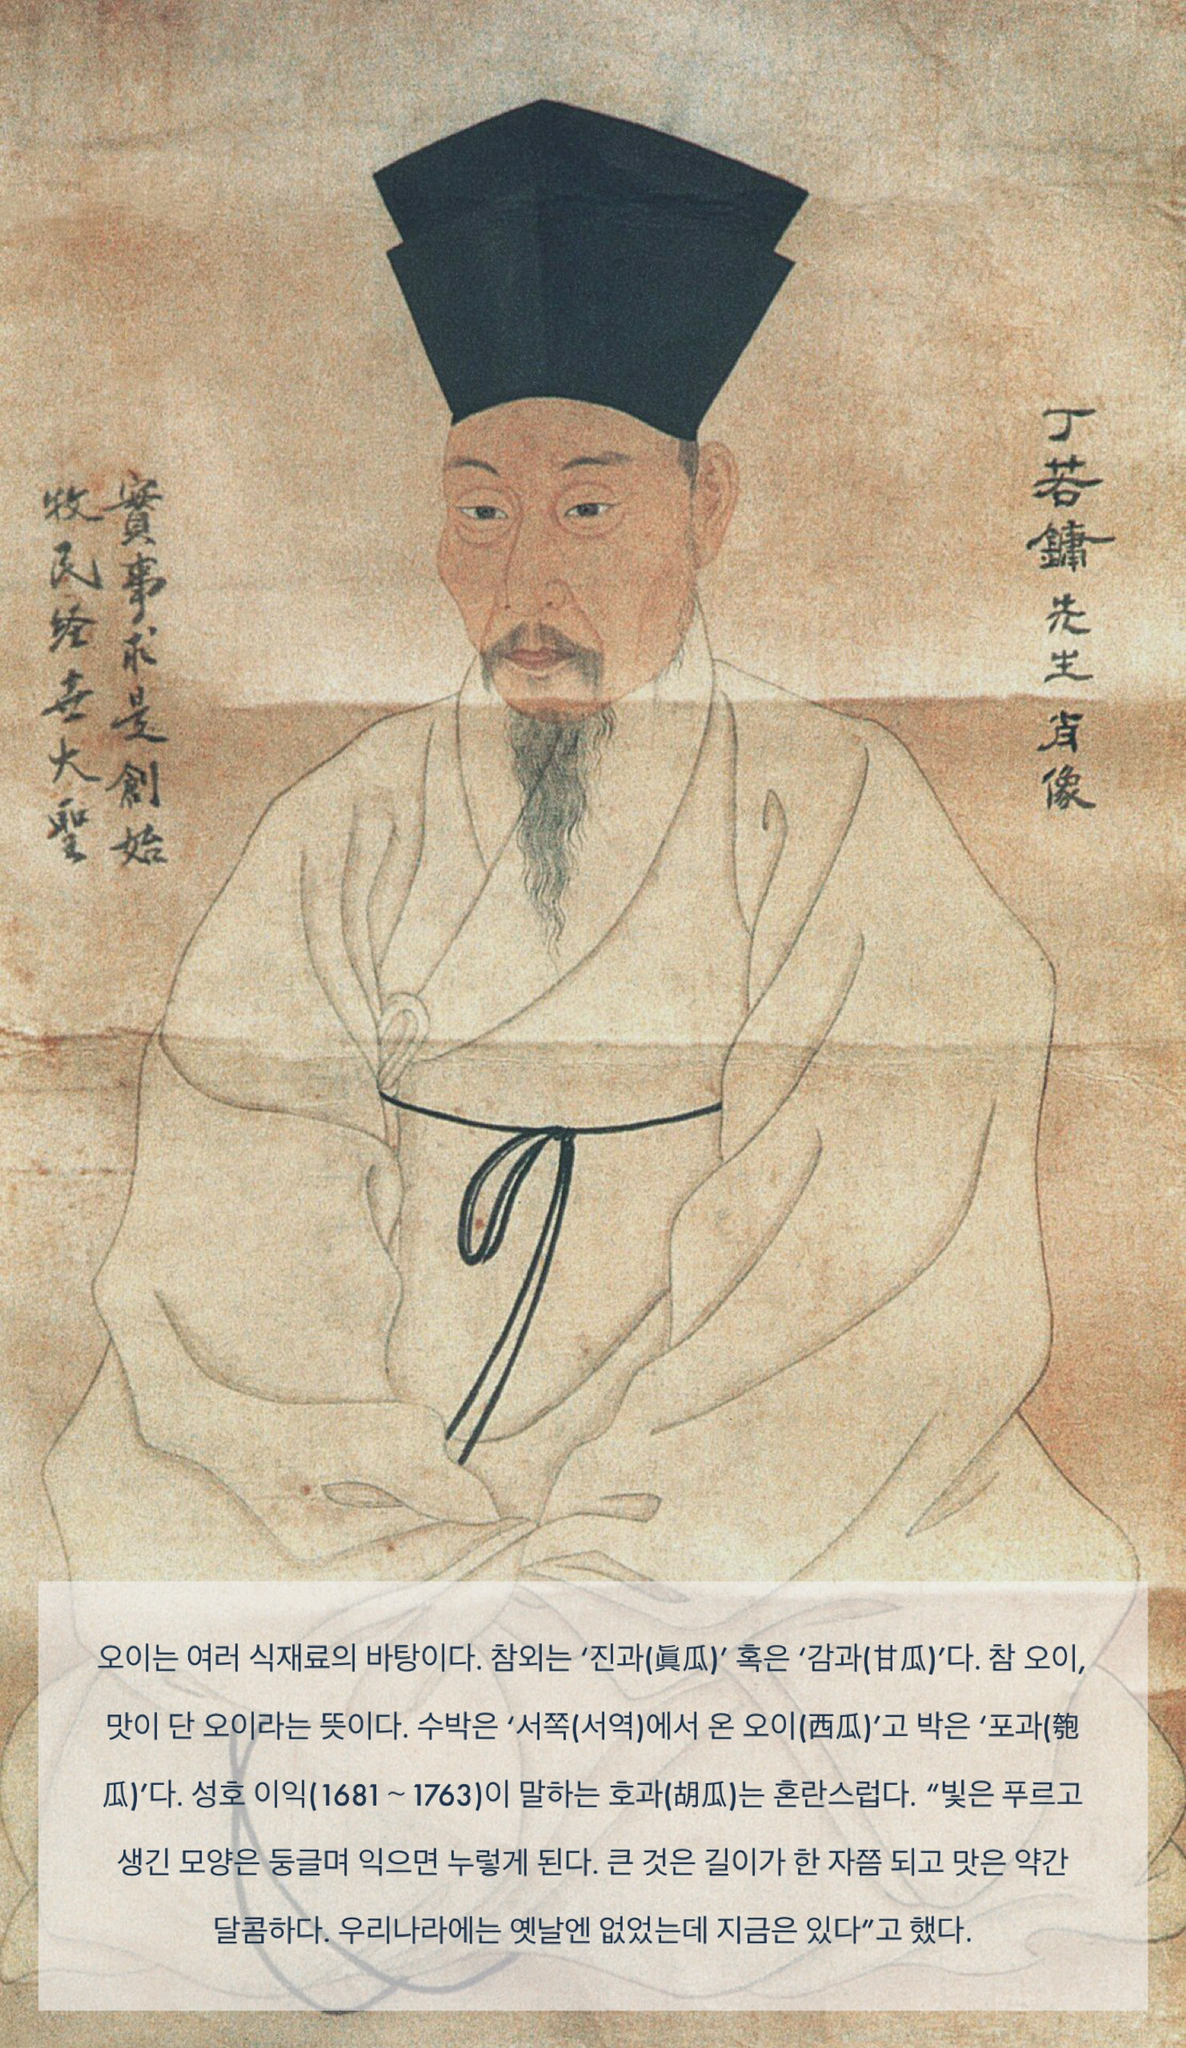 丁若鏞先生肖像
實事求是創始
牧民経世大聖
오이는 여러 식재료의 바탕이다. 참외는 ‘진과(眞瓜)’ 혹은 ‘감과(甘瓜)’다. 참 오이,
맛이 단 오이라는 뜻이다. 수박은 ‘서쪽(서역)에서 온 오이(西瓜)’고 박은 ‘포과(匏
瓜)’다. 성호 이익(1681 ~ 1763)이 말하는 호과(胡瓜)는 혼란스럽다. “빛은 푸르고
생긴 모양은 둥글며 익으면 누렇게 된다. 큰 것은 길이가 한 자쯤 되고 맛은 약간
달콤하다. 우리나라에는 옛날엔 없었는데 지금은 있다”고 했다.